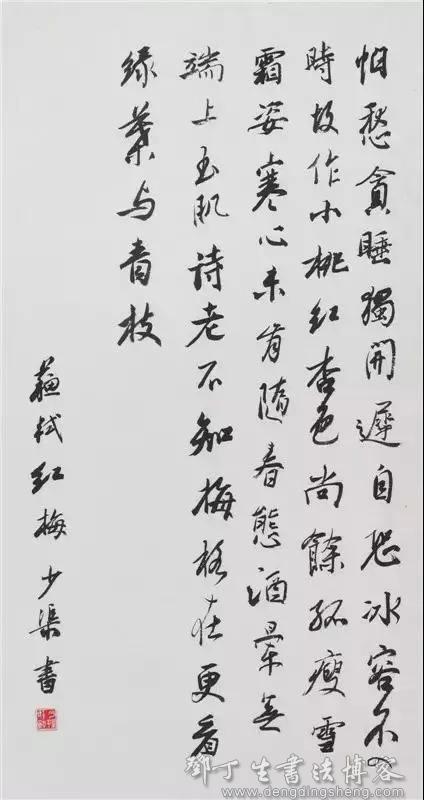 怕愁貪睡獨開遲自恐冰容不入
時故作小桃紅杏色尚餘孤瘦雪
霜姿寒心未肯隨春態酒暈無
端上玉肌詩老不知梅格在更看
綠葉与青枝
蘇軾紅梅 少渠書
鄧丁生書法博客
www.dengdingsheng.com